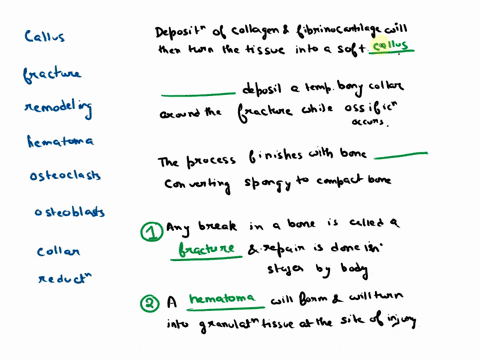 Callus
fracture
remodeling
hematoma
osteoclasts
osteoblasts
collar
reductⁿ
Depositⁿ of collagen & fibrinocartilage will
then turn the tissue into a soft callus
deposit a temp. bony collar
around the fracture while ossificⁿ
occurs.
The process finishes with bone
converting spongy to compact bone
① Any break in a bone is called a
fracture & repair is done in
stages by body
② A hematoma will form & will turn
into granulatⁿ tissue at the site of injury